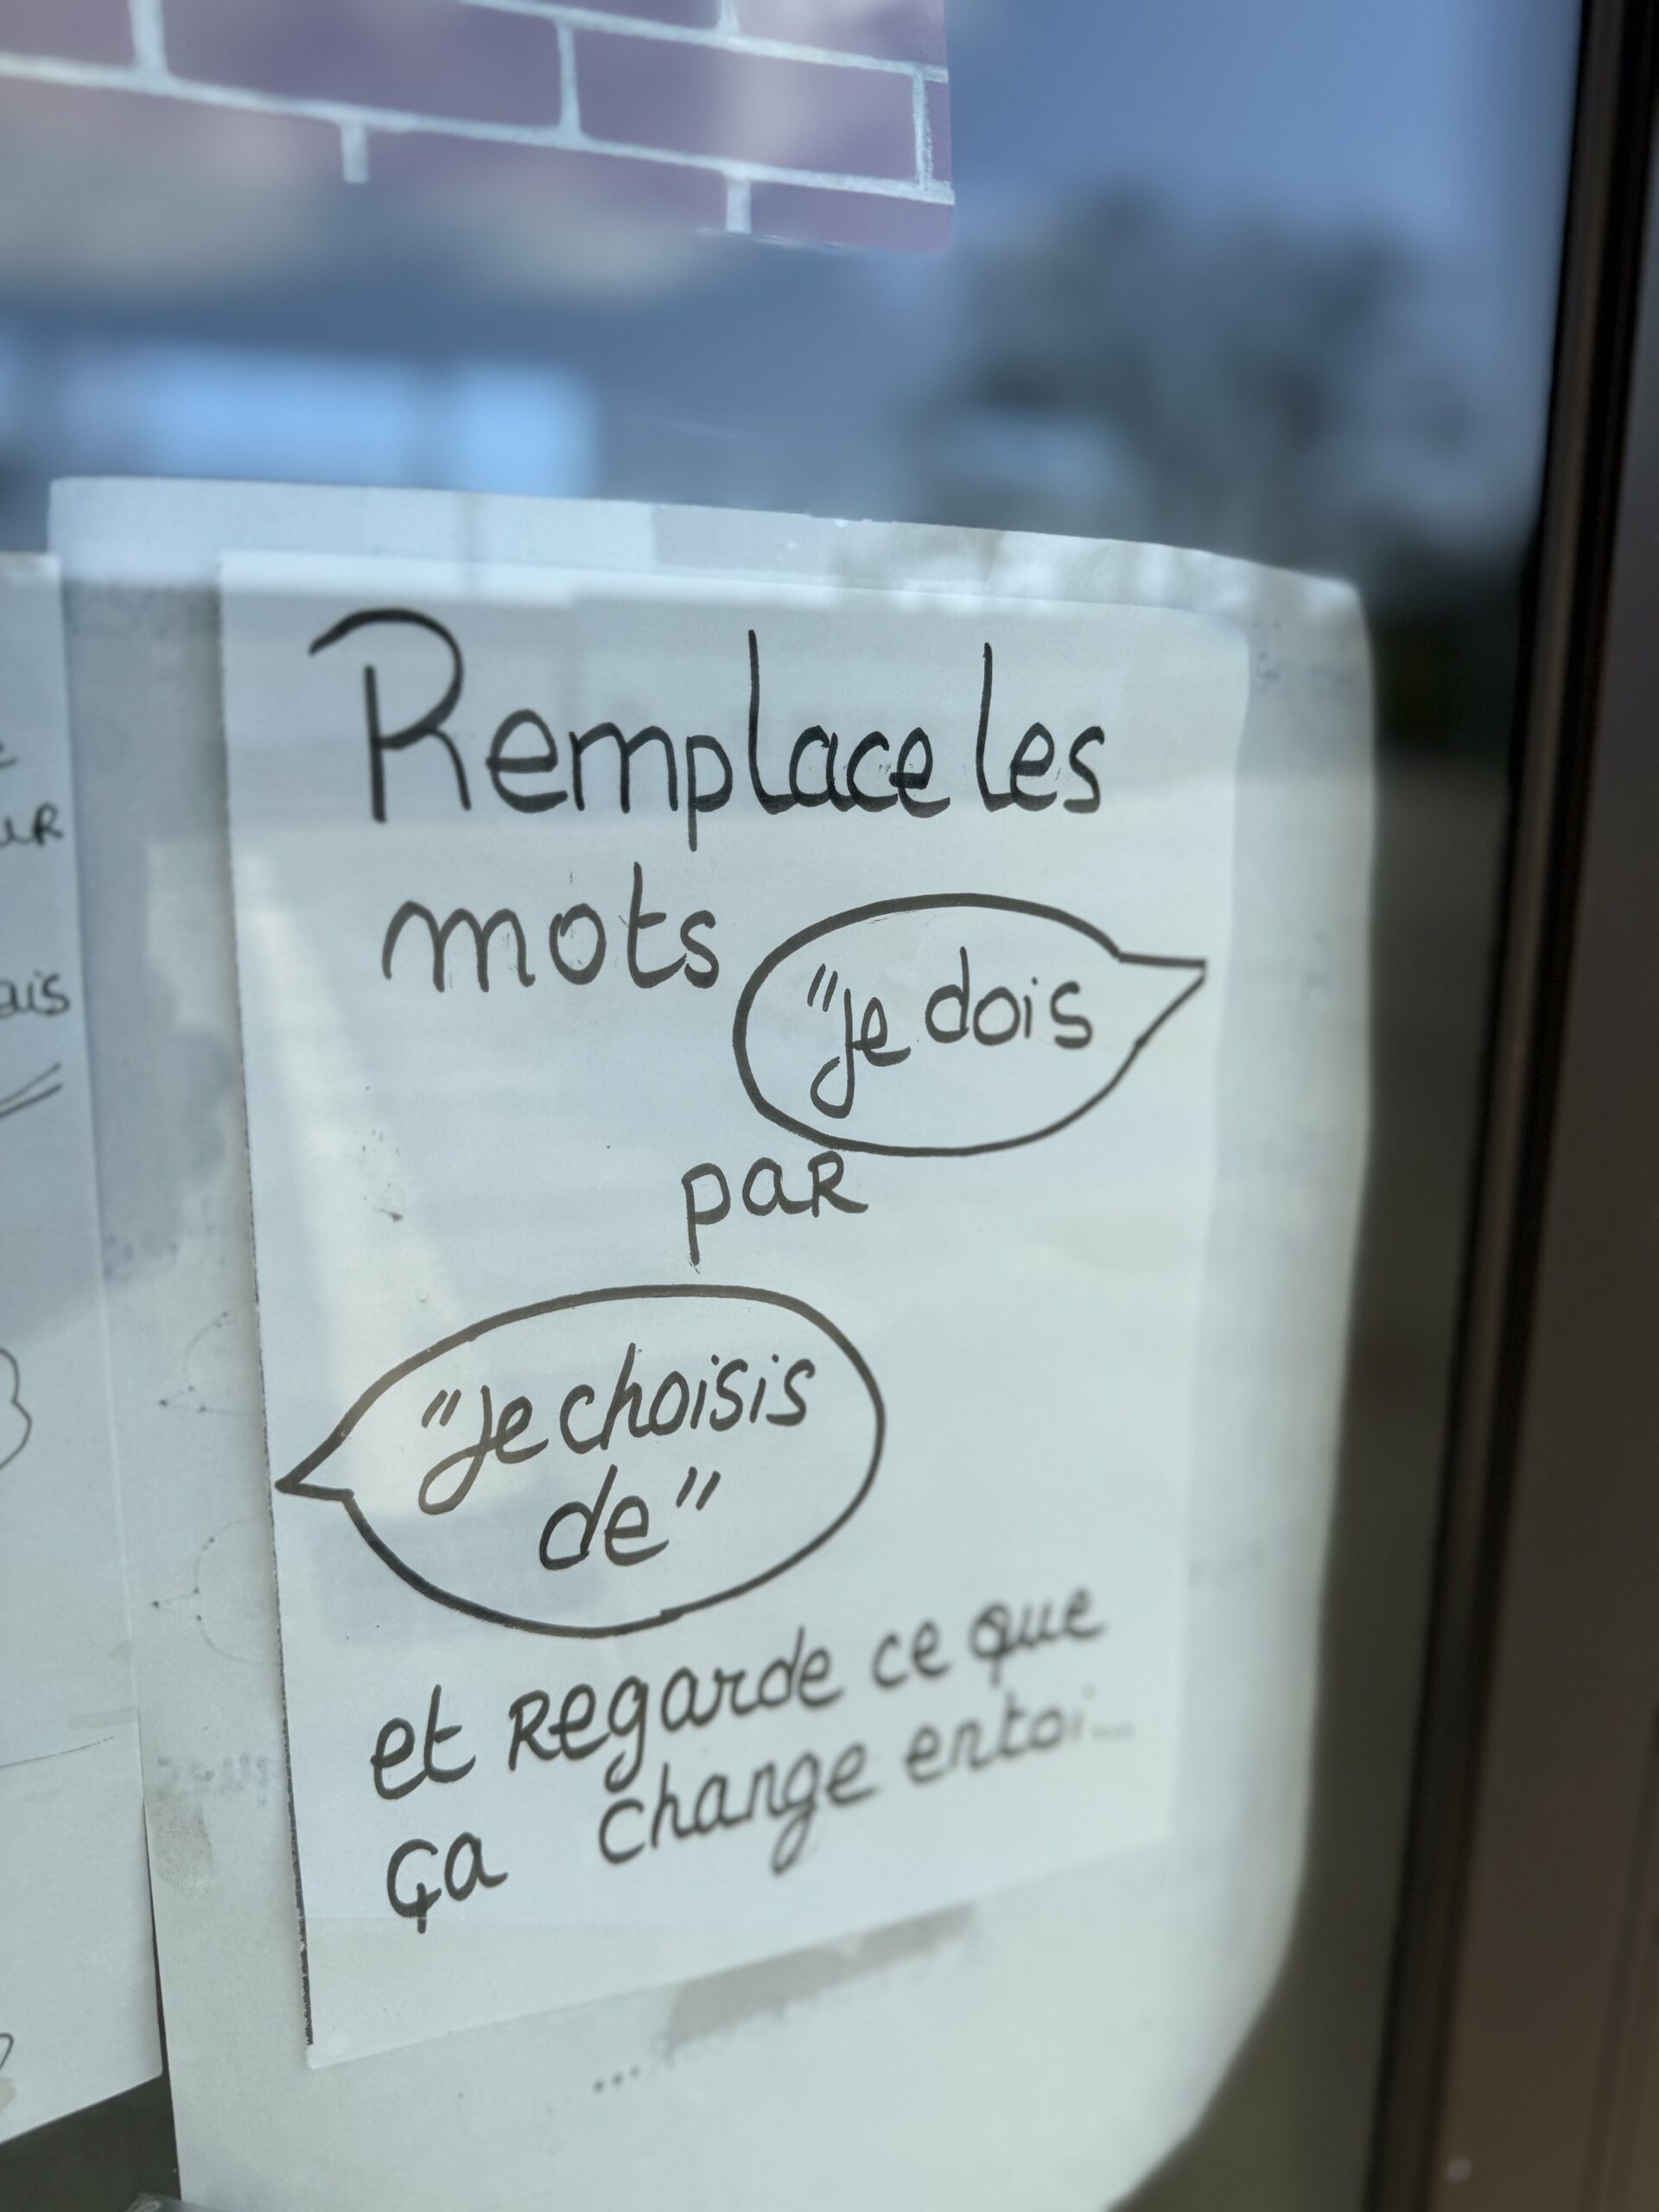 Remplace les
mots "je dois
par
"Je choisis
de"
et regarde ce que
ça change en toi...
uR
ais